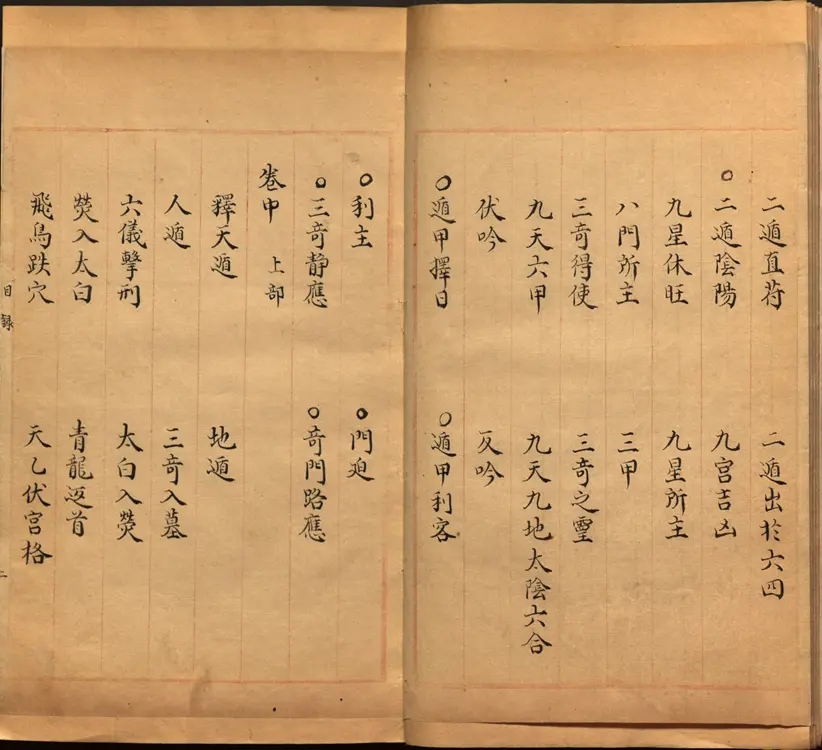 二遁直苻　二遁出於六四
○二遁陰陽　九宮吉凶
九星休旺　九星所主
八門所主　三甲
三奇得使　三奇之靈
九天六甲　九天九地太陰六合
伏吟　反吟
○遁甲擇日　○遁甲利客
○利主　○門迫
○三奇静應　○奇門路應
卷甲　上部
釋天遁　地遁
人遁　三奇入墓
六儀擊刑　太白入熒
熒入太白　青龍迈首
飛鳥跌穴　天乙伏宮格
目錄
二